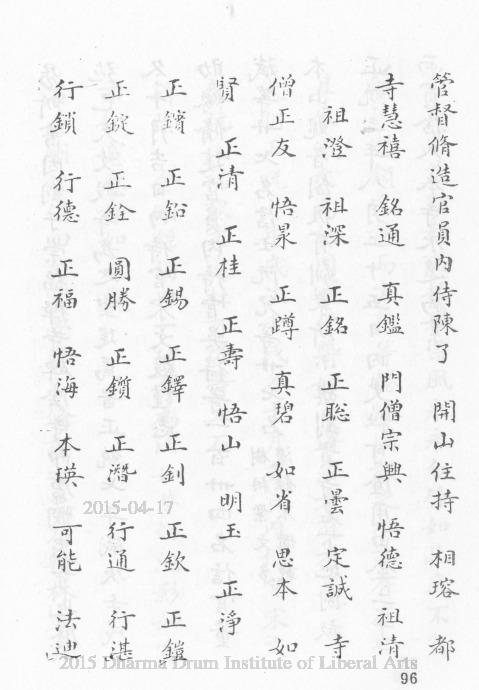 管督脩造官員內侍陳了 開山住持 相瑢 都
寺慧禧 銘通 真鑑 門僧宗興 悟德 祖清
祖澄 祖深 正銘 正聡 正曇 定誠 寺
僧正友 悟杲 正蹲 真碧 如省 思本 如
賢 正清 正桂 正壽 悟山 明玉 正淨
正鑌 正鉛 正錫 正鐸 正釗 正欽 正鎧
正錠 正銓 圓勝 正鑕 正潛 行通 行湛
行鎖 行德 正福 悟海 本瑛 可能 法迪
2015-04-17
2015 Dharma Drum Institute of Liberal Arts
96